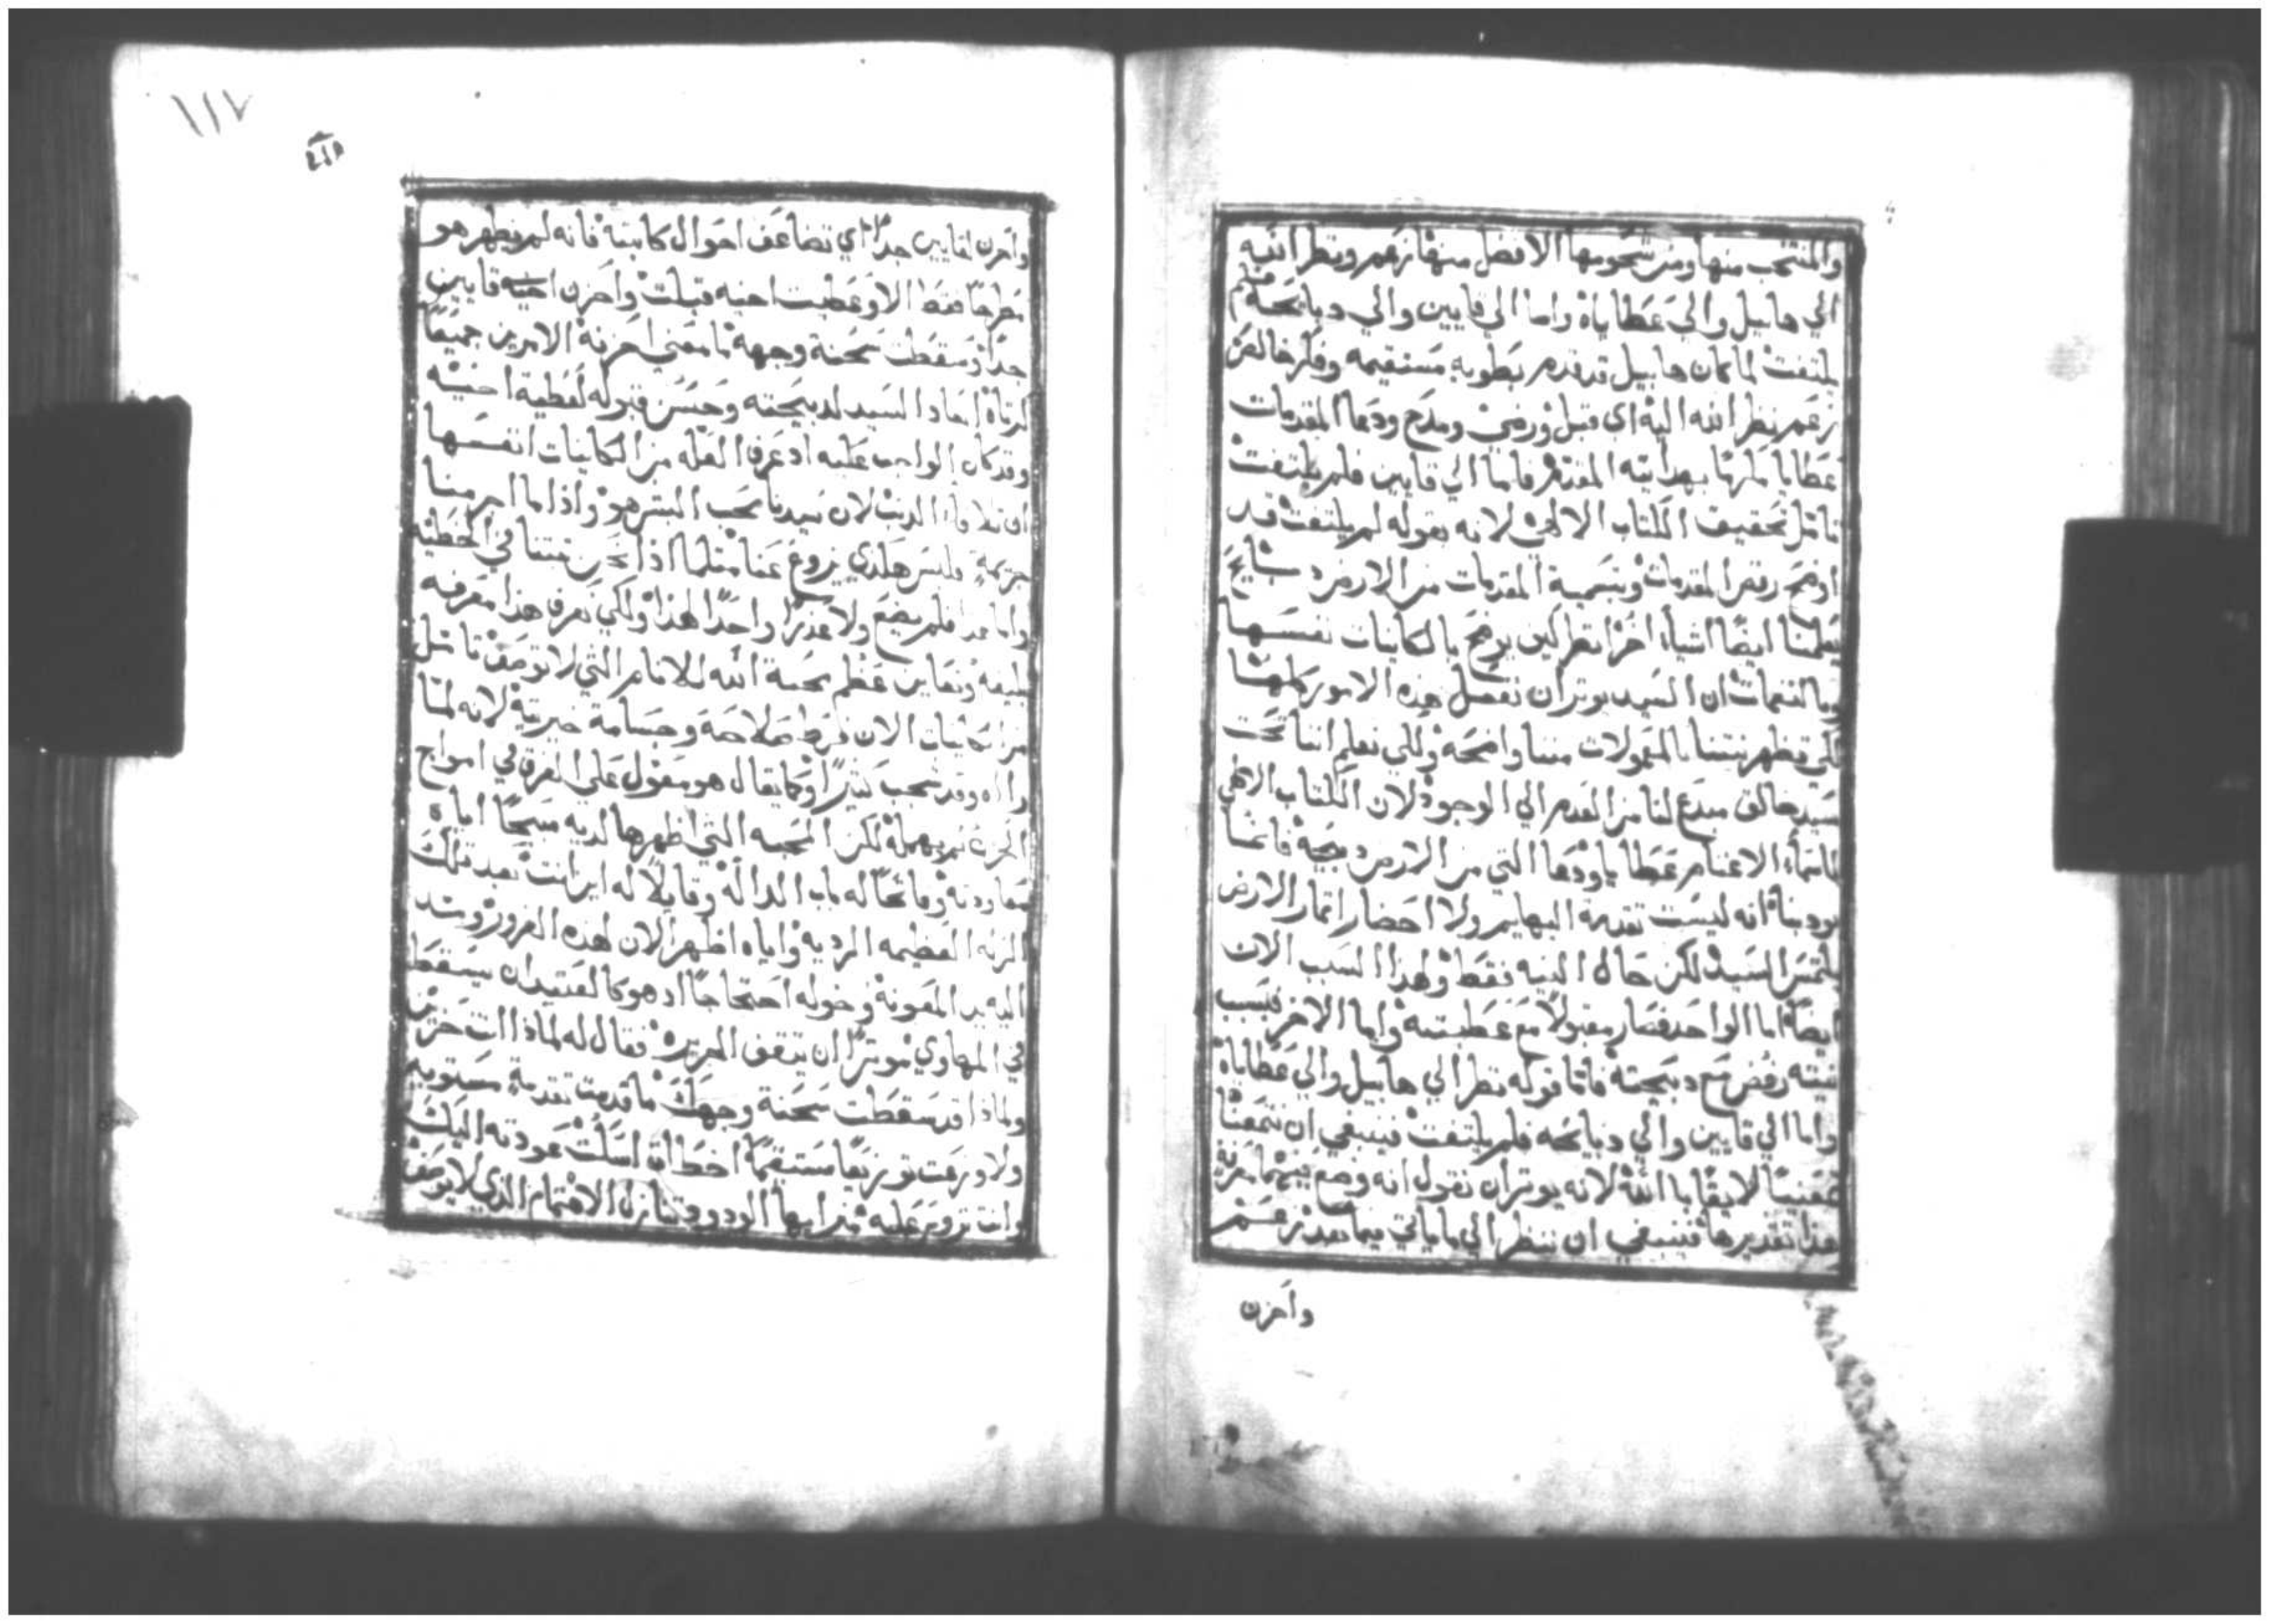 والمنتخب منها ومن شحومها الافضل منها زعم ونظر الله
الي هابيل والي عطاياه واما الي قايين والي دبايحه فلم
يلتفت لما كان هابيل قد قدم بطويه مستقيمه وفكر خالص
زعم نظر الله اليه اي قبل ورضي ومدح ودعا المقدمات
عطايا بهدا نيته المقدم فاما الي قايين فلم يلتفت
تامل تحقيق الكتاب الالهي لانه بقوله لم يلتفت قد
اوضح رفض المقدمات وبتسمية المقدمات من الارض دبايح
يعلمنا ايضًا اشياء اخر انظر كيف يوضح بالكاينات نفسها
وبالنغمات ان السيد يوثر ان تفعل هذه الامور كلها
لكي تظهر نيتنا بالمفعولات مننا واضحه ولكي نعلم اننا تحت
سيد خالق مبدع لنا من العدم الي الوجود لان الكتاب الالهي
باسماء الاغنام عطايا ودعا التي من الارض دبيحة فانما
يودينا انه ليست تقدمة البهايم ولا احضار اثمار الارض
يلتمس السيد لكن حال النيه فقط ولهذا السبب الان
ايضًا اما الواحد فصار مقبولا مع عطيته واما الاخر فبسبب
نيته رفض مع دبيحته فاما قوله نظر الي هابيل والي عطاياه
واما الي قايين والي دبايحه فلم يلتفت فينبغي ان نتمعنا
لايقًا بالله لانه يوثر ان نقول انه وضع
هذا تقديرها فينبغي ان ننظر الي ما ياتي فيما بعد زعم
واحزن
١١٧
واحزن لقايين جدًا اي تضاعف احوال كابته فانه لم يظهر هو
مطرحًا فقط الا وعطيت اخيه قبلت واحزن اخيه قايين
جدًا وسقطت سحنة وجهه ما معني احزنه الامرين جميعًا
السيد لدبيحته وحسن قبوله لعطية اخيه
وقد كان الواجب عليه اذ عرف العله من الكاينات انفسها
ان الذنب لان سيدنا محب البشر هو واذا ما اجرمنا
جريمة فليس هكذي يروغ عنا مثلما اذا نحن نبتنا في الخطيه
واما هذا فلم يضع ولا عذرًا واحدًا لهذا ولكي نعرف هذا معرفه
بليغه ونعاين عظم محبة الله للانام التي لا توصف تامل
من الكاينات الان فرط صلاحه وجسامة خيريته لانه لما
راه وقد شحب كثيرًا وكما يقال هو مقول علي الغرق في امواج
الحزن لم يهمله لكن المحبه التي اظهرها لديه اياه
وفاتحًا له باب الداله وقايلا له اين انت بعد تلك
الزله العظيمه الرديه واياه اظهر الان لهذه الغرور ومد
اليه يد المعونة وخوله احتجاجًا اذ هو كالعتيد ان يسقط
في المهاوي موثرًا ان يتقن المزيد فقال له لماذا انت حزين
ولماذا قد سقطت سحنة وجهك ما قدمت تقدمة مستويه
ولا وزعت توزيعًا مستقيمًا اخطات اسكت عودته اليك
وانت تروس عليه من ايها الودود وتنازل الاهتمام الذي لا يوصف